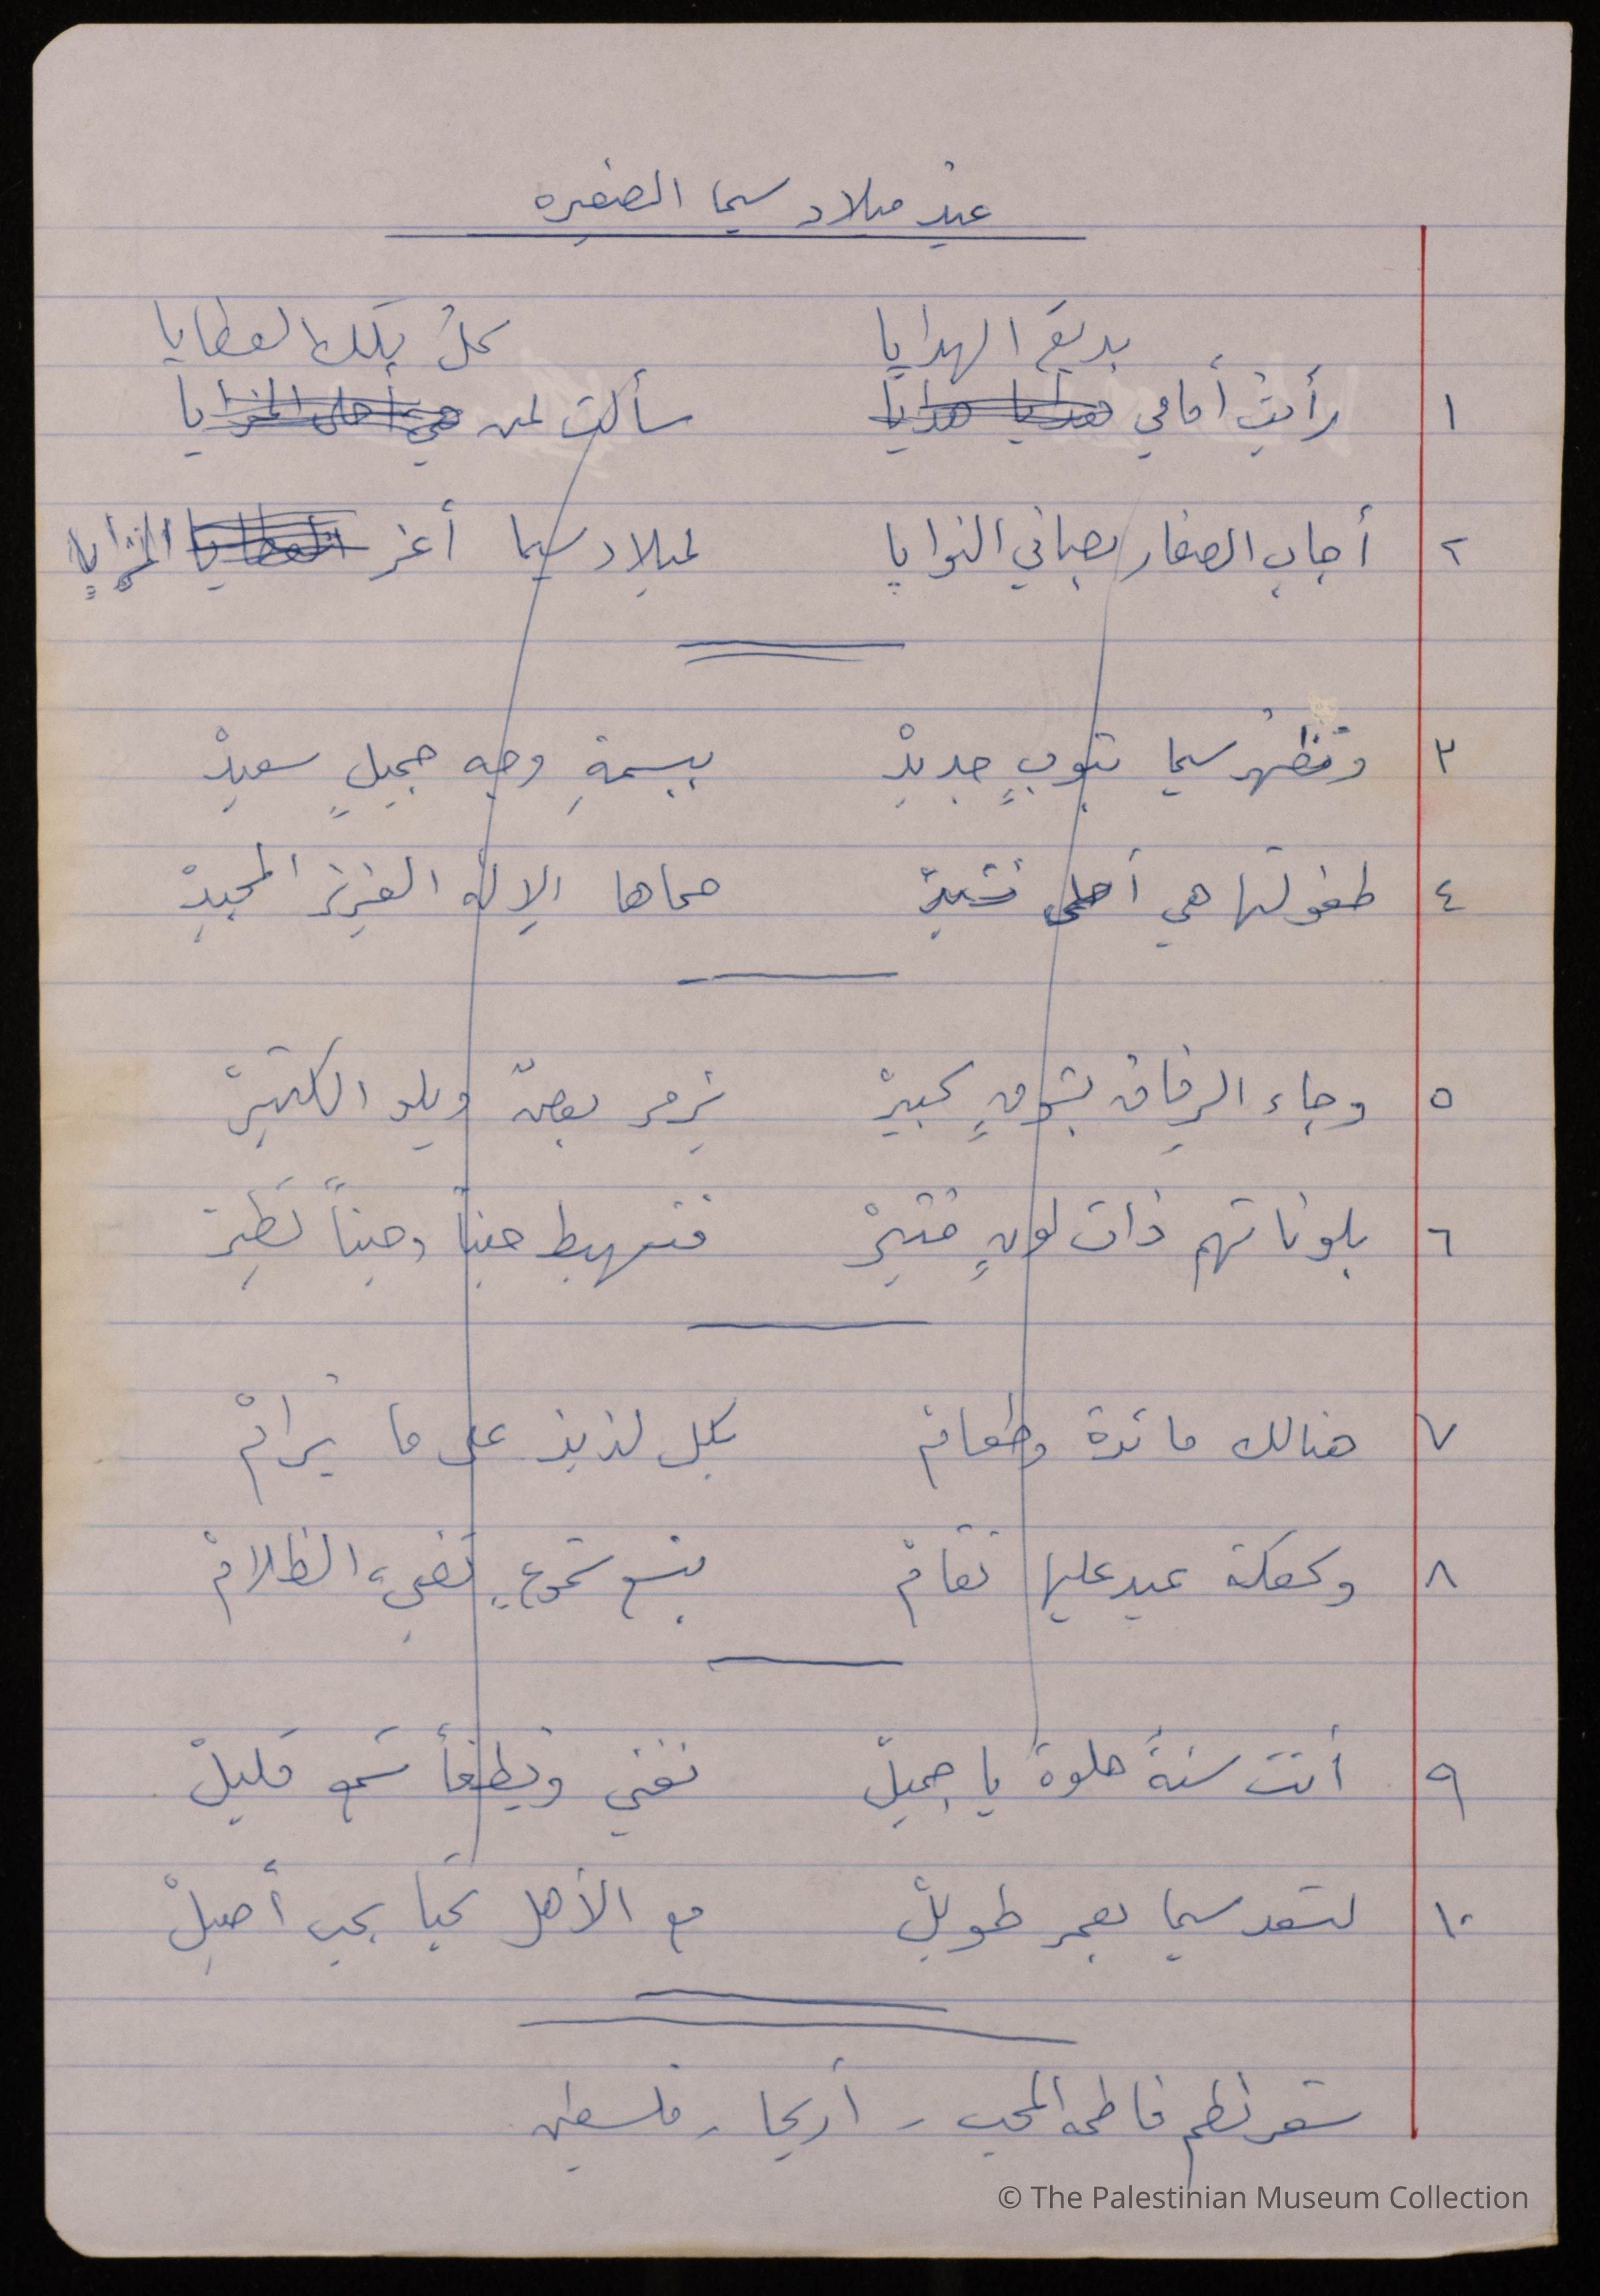 عيد ميلاد سيما الصغيره
بديع الهدايا كلُ تلك العطايا
١ رأيتُ أمامي هدايا هدايا سألت لمن هي أحلى المزايا
٢ أجاب الصغار بصافي النوايا لميلاد سيما أعز العطايا المزايا
٣ وتظهر سيما بثوبٍ جديدْ ببسمةِ وجه جميلٍ سعيدْ
٤ طفولتها هي أحلى نشيدْ حماها الإله العزيز المجيدْ
٥ وجاء الرفاق بشوقٍ كبيرْ يزمر بعضٌ ويلهو الكثيرْ
٦ بلوناتهم ذات لونٍ مثيرْ فتهبط حيناً وحيناً تطيرْ
٧ هنالك مائدة وطعامْ بكل لذيذ على ما يُرامْ
٨ وكعكة عيد عليها تقامْ بتسع شموعٍ تضيء الظلامْ
٩ أنت سنةً حلوة يا جميلْ نغني ويطفأ شمع قليلْ
١٠ لتسعد سيما بعمر طويلْ مع الأهل تحيا بحب أصيلْ
شعر نظم فاطمه المحب - أريحا - فلسطين
© The Palestinian Museum Collection